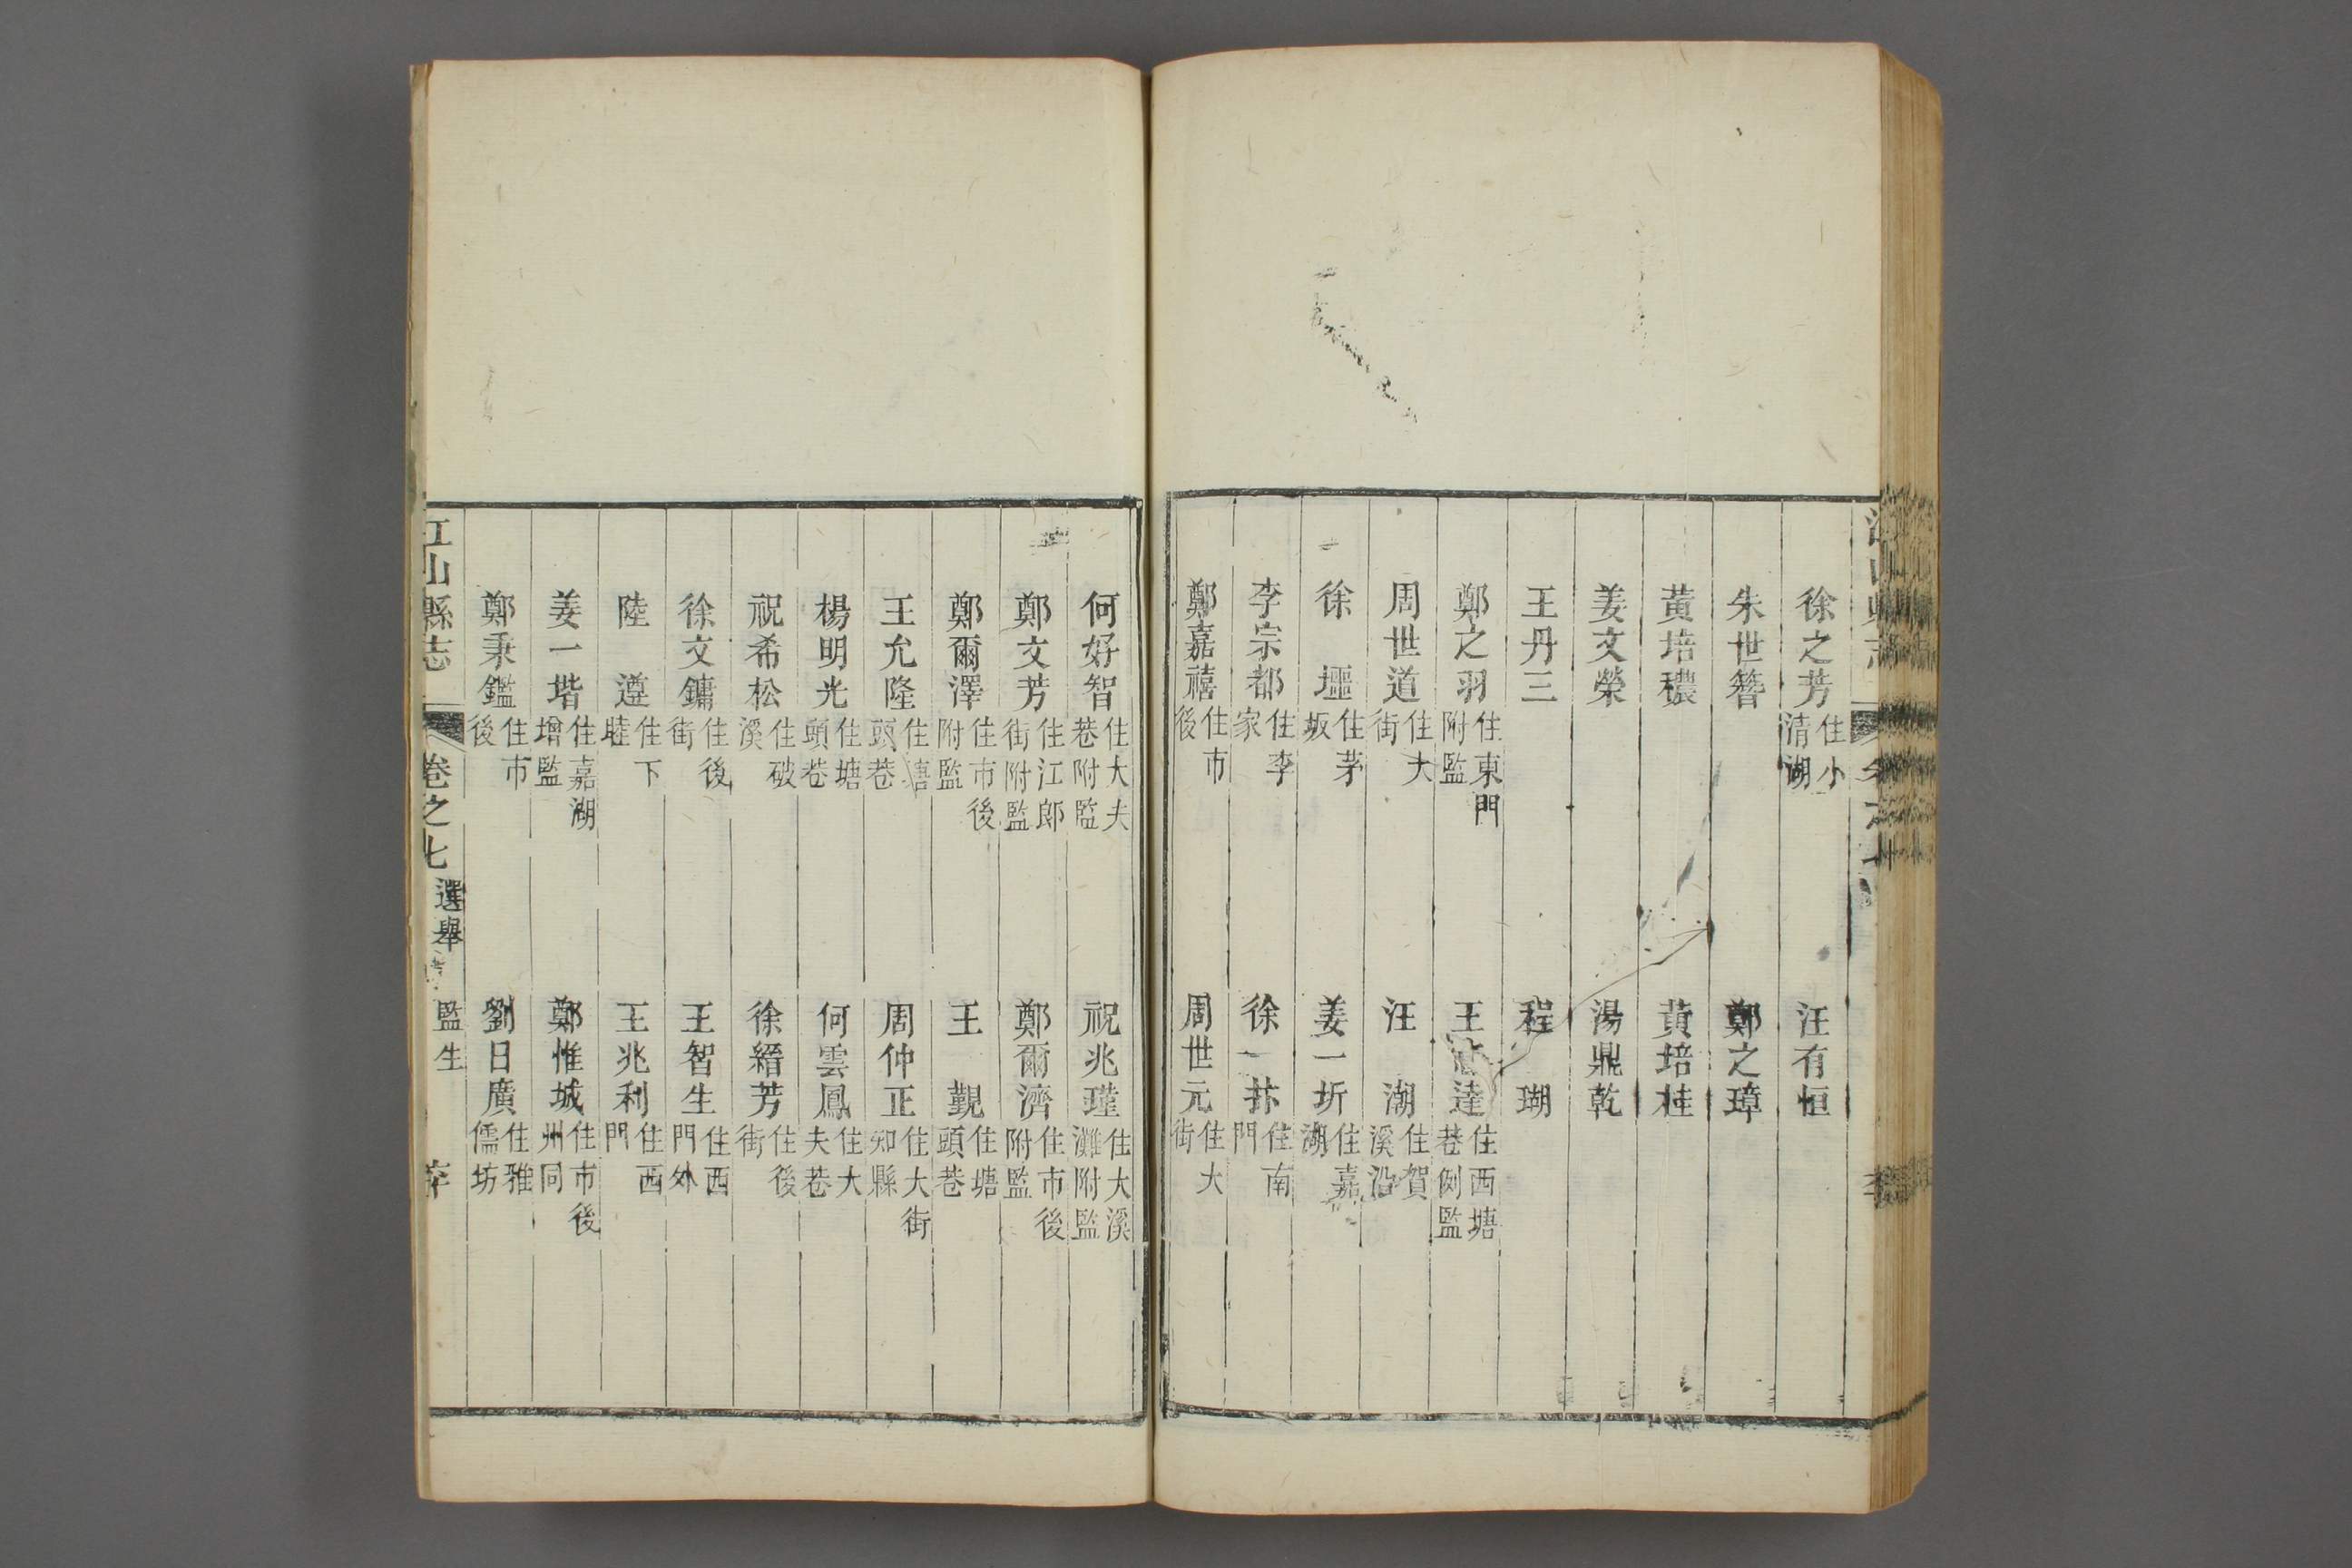 徐之芳 住小清湖 汪有恒
朱世簪 鄭之璋
黃培穠 黃培桂
姜文榮 湯鼎乾
王丹三 程 瑚
鄭之羽 住東門附監 王 達 住西塘巷例監
周世道 住大街 汪 湖 住賀溪沿
徐 壃 住茅坂 姜一圻 住嘉湖
李宗都 住李家 徐 住南門
鄭嘉禧 住市後 周世元 住大街
何好智 住大夫巷附監 祝兆瑾 住大溪灘附監
鄭文芳 住江郎街附監 鄭爾濟 住市後附監
鄭爾澤 住市後附監 王 覲 住塘頭巷
王允隆 住塘頭巷 周仲正 住大街知縣
楊明光 住塘頭巷 何雲鳳 住大夫巷
祝希松 住破溪 徐縉芳 住後街
徐文鏞 住後街 王智生 住西門外
陸 遵 住下睦 王兆利 住西門
姜一堦 住嘉湖增監 鄭惟城 住市後州同
鄭秉鑑 住市後 劉日廣 住雅儒坊
江山縣志 卷之七 選舉 監生